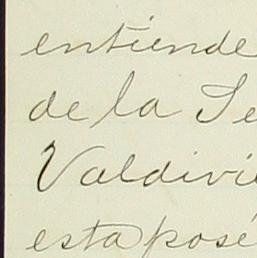 entiende
de la Se
Valdivie
esta posé